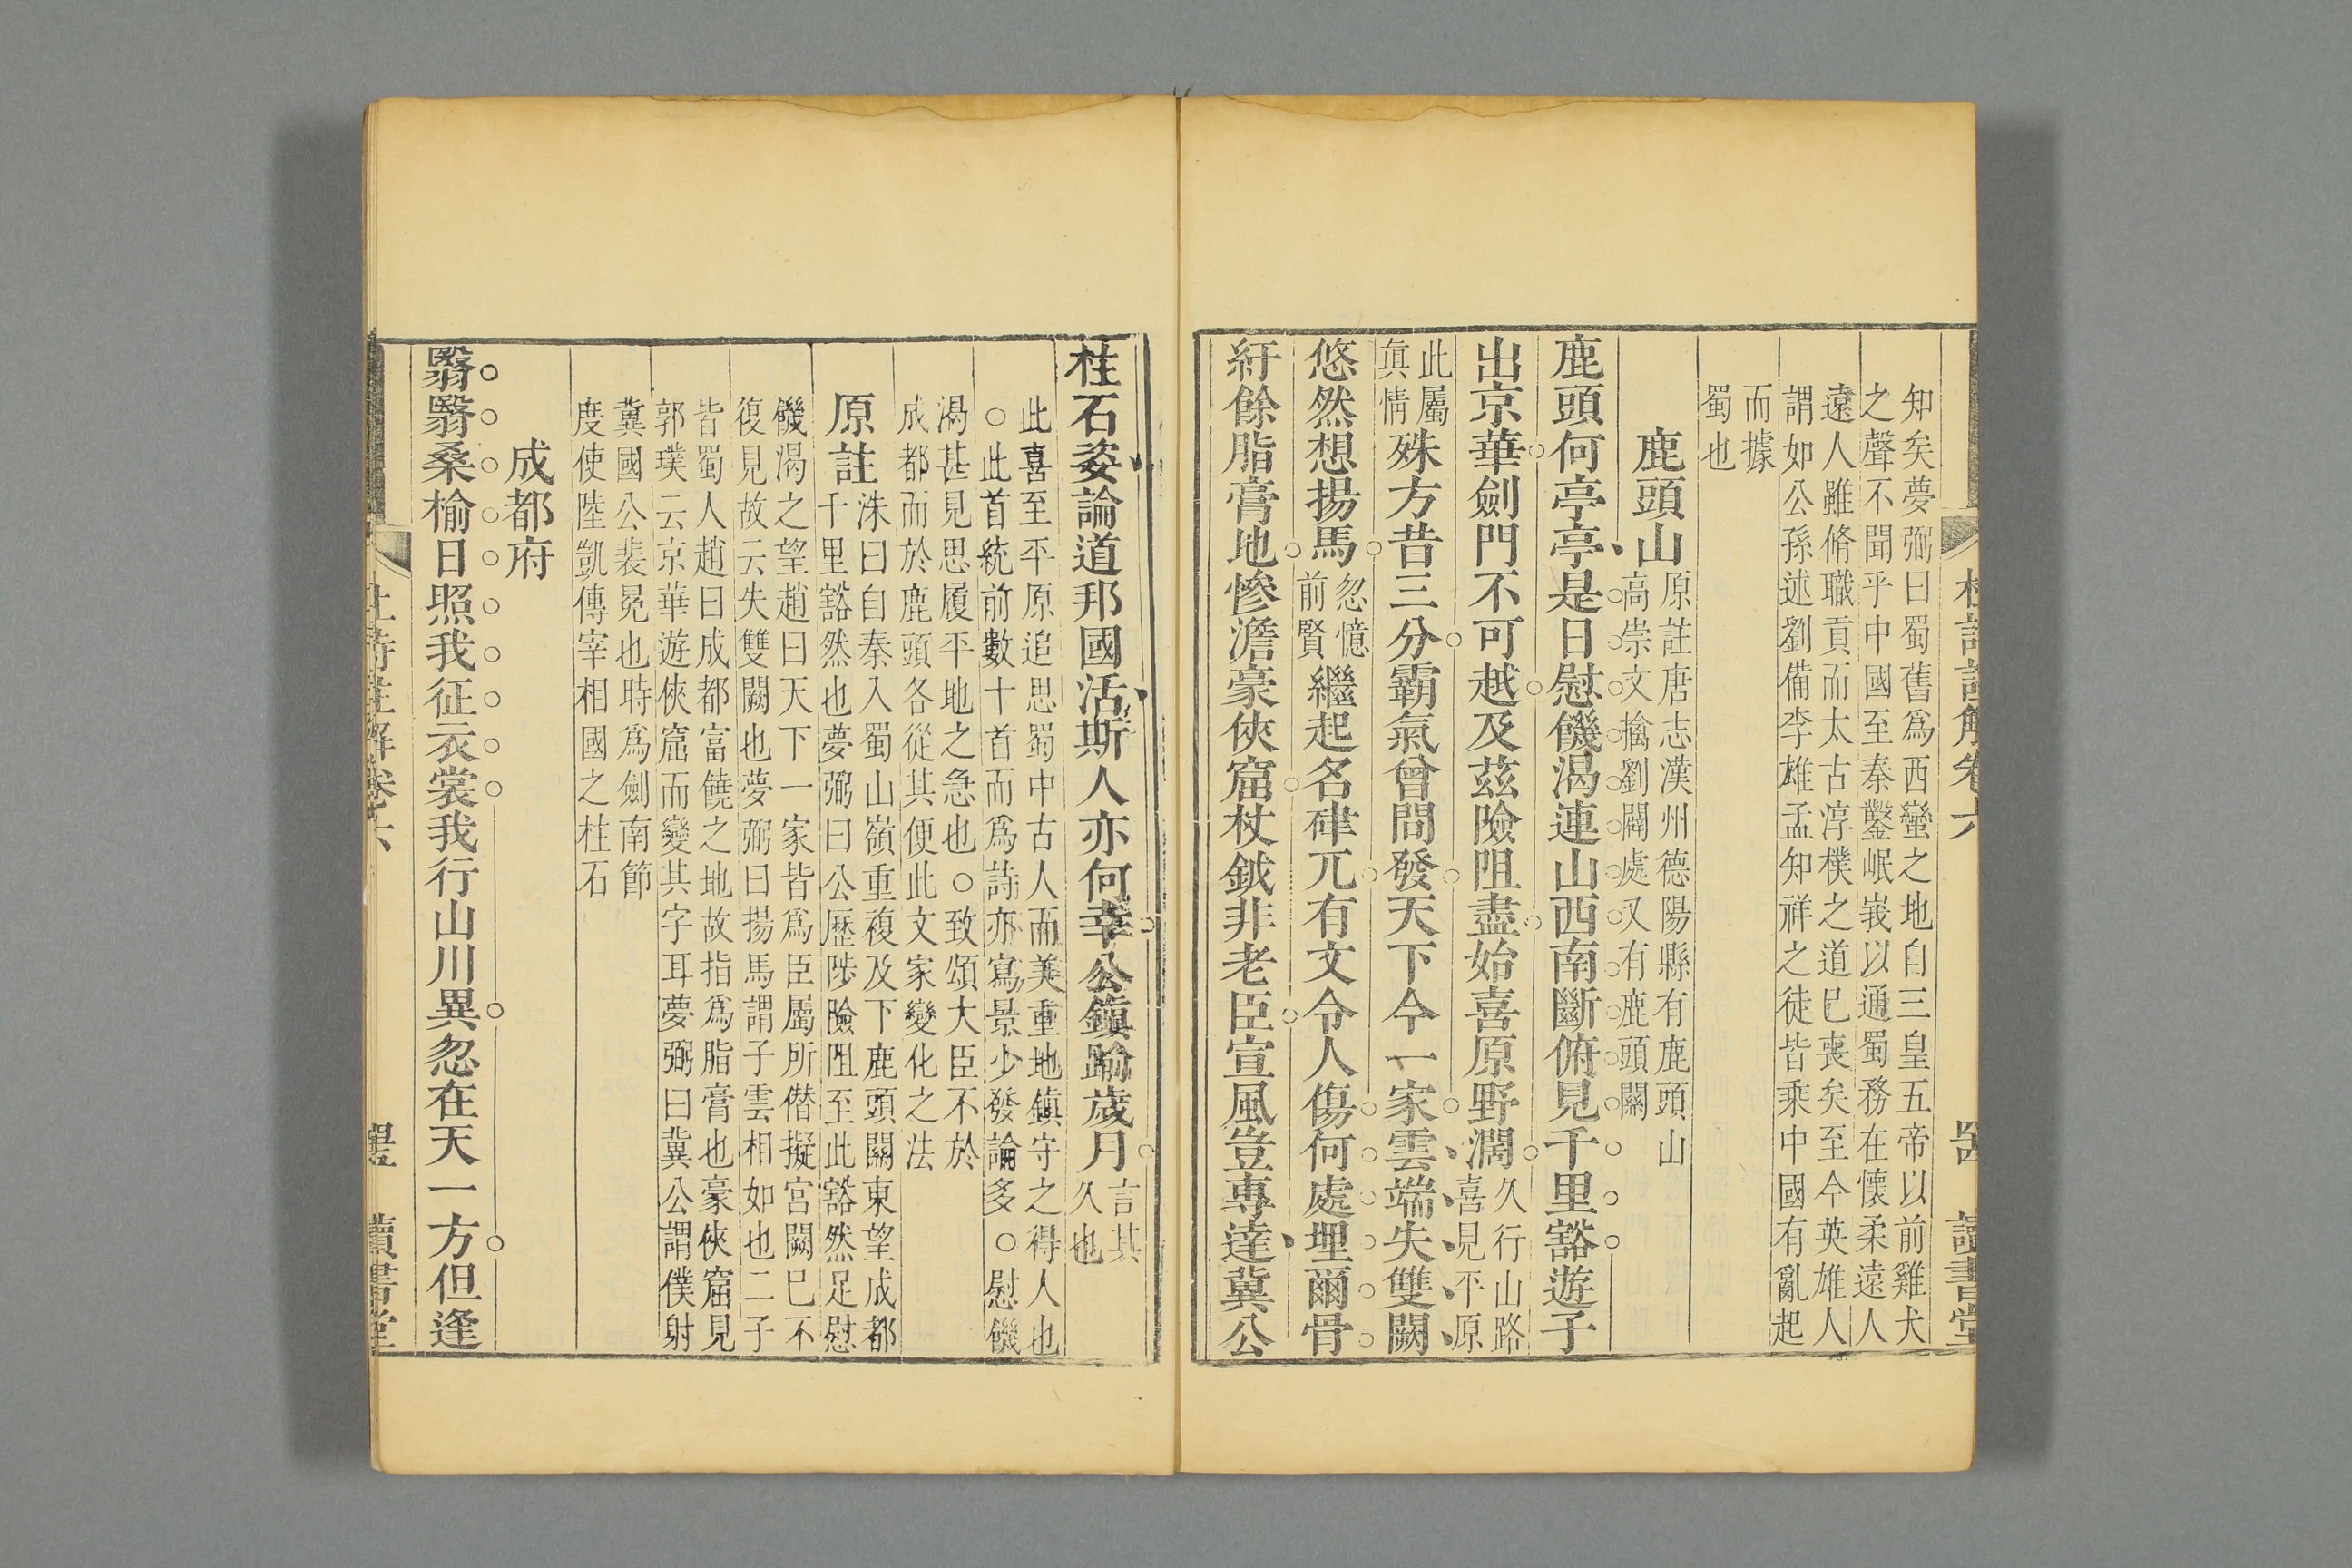 知矣夢弼曰蜀舊爲西蠻之地自三皇五帝以前雞犬
之聲不聞乎中國至秦鑿岷峩以通蜀務在懷柔遠人
遠人雖脩職貢而太古淳樸之道已喪矣至今英雄人
謂如公孫述劉備李雄孟知祥之徒皆乘中國有亂起
而據
蜀也
鹿頭山
原註唐志漢州德陽縣有鹿頭山
高崇文擒劉闢處又有鹿頭關
鹿頭何亭亭是日慰饑渴連山西南斷俯見千里豁遊子
出京華劍門不可越及茲險阻盡始喜原野濶
久行山路
喜見平原
此屬
眞情
殊方昔三分霸氣曾間發天下今一家雲端失雙闕
悠然想揚馬
忽憶
前賢
繼起名硉兀有文令人傷何處埋爾骨
紆餘脂膏地慘澹豪俠窟杖鉞非老臣宣風豈專達冀公
柱石姿論道邦國活斯人亦何幸公鎭踰歲月
言其
久也
此喜至平原追思蜀中古人而美重地鎮守之得人也
○此首統前數十首而爲詩亦寫景少發論多○慰饑
渴甚見思履平地之急也○致頌大臣不於
成都而於鹿頭各從其便此文家變化之法
原註
洙曰自秦入蜀山嶺重複及下鹿頭關東望成都
千里豁然也夢弼曰公歷陟險阻至此豁然足慰
饑渴之望趙曰天下一家皆爲臣屬所僣擬宮闕已不
復見故云失雙闕也夢弼曰揚馬謂子雲相如也二子
皆蜀人趙曰成都富饒之地故指爲脂膏也豪俠窟見
郭璞云京華遊俠窟而變其字耳夢弼曰冀公謂僕射
冀國公裴冕也時爲劍南節
度使陸凱傳宰相國之柱石
成都府
翳翳桑榆日照我征衣裳我行山川異忽在天一方但逢
杜詩註解卷六
讀書堂